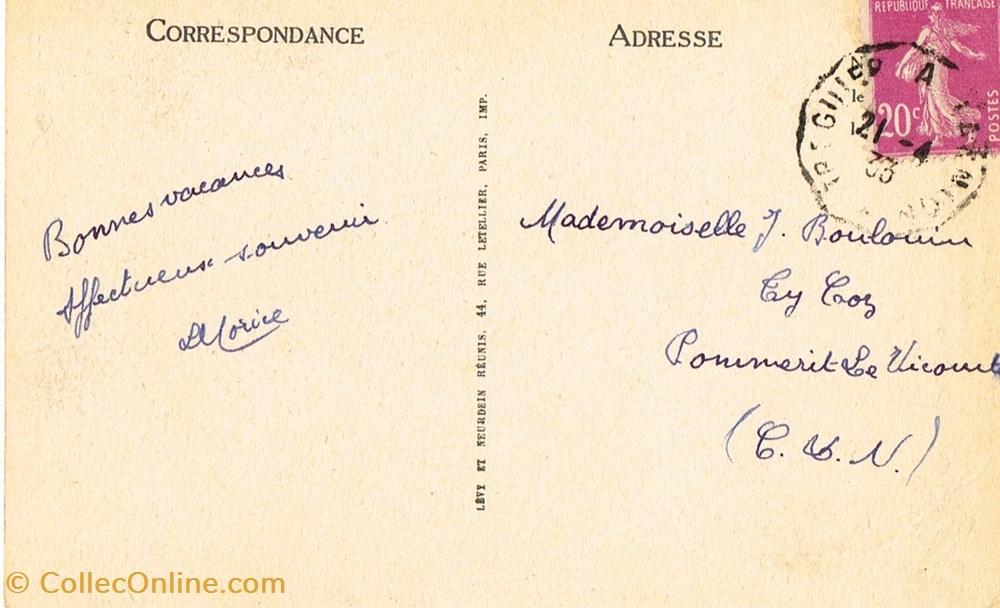 CORRESPONDANCE
Bonnes vacances
Affectueux souvenir
LMorice
LÉVY ET NEURDEIN RÉUNIS, 44, RUE LETELLIER, PARIS, IMP.
ADRESSE
RÉPUBLIQUE FRANÇAISE
20c
POSTES
TREGUIER A LANNION
21-4
33
Mademoiselle J. Boulouin
Ty Coz
Pommerit Le Vicomte
(C. du N.)
© CollecOnline.com